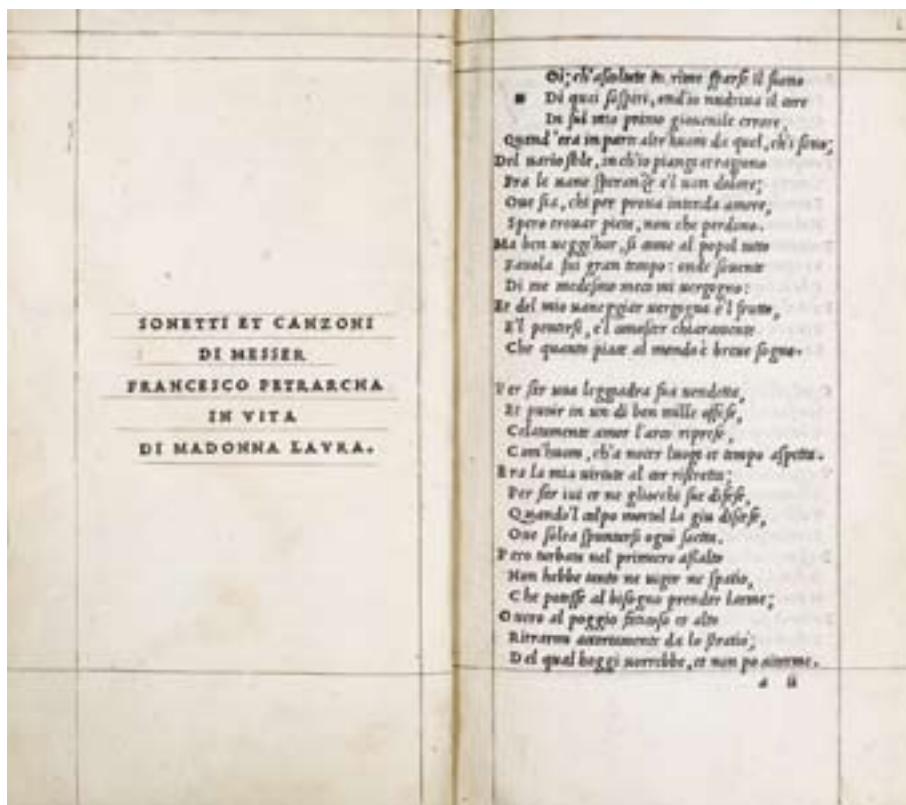 SONETTI ET CANZONI
DI MESSER
FRANCESCO PETRARCHA
IN VITA
DI MADONNA LAVRA.
Oi; ch'ascoltate in rime sparse il suono
Di quei sospiri, ond'io nudriua il core
In sul mio primo giouenile errore,
Quand'era in parte altr'huom da quel, ch'i sono;
Del uario stile, in ch'io piango et ragiono
Fra le uane speranze e'l uan dolore;
Oue sia, chi per proua intenda amore,
Spero trouar pieta, non che perdono.
Ma ben ueggi'hor, si come al popol tutto
Fauola fui gran tempo: onde souente
Di me medesmo meco mi uergogno:
Et del mio uaneggiar uergogna e'l frutto,
E'l pentirsi, e'l conoscer chiaramente
Che quanto piace al mondo è breue sogno.
Per far una leggiadra sua uendetta,
Et punir in un di ben mille offese,
Celatamente amor l'arco riprese,
Com'huom, ch'a nocer luogo et tempo aspetta.
Era la mia uirtute al cor ristretta;
Per far iui et ne gliocchi sue difese,
Quando'l colpo mortal la giu discese,
Oue solea spuntarsi ogni saetta.
Pero turbata nel primiero assalto
Non hebbe tanto ne uigor ne spatio,
Che potesse al bisogno prender larme;
Ouero al poggio faticoso et alto
Ritrarmi accortamente da lo stratio;
Del qual hoggi uorrebbe, et non po aitarme.
a ii